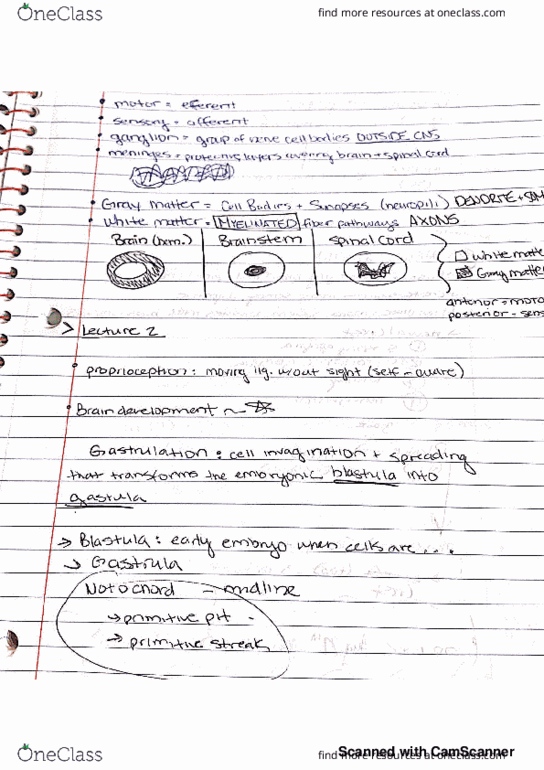 OneClass
find more resources at oneclass.com
motor = efferent
sensory = afferent
ganglion = group of nerve cell bodies OUTSIDE CNS
meninges = protective layers covering brain + spinal cord
Gray matter = Cell Bodies + Synapses (neuropili) DENDRITE +
White matter = MYELINATED fiber pathways AXONS
Brain (hem.) Brainstem spinal cord
white matte
Gray matte
anterior = moto
posterior - sens
> Lecture 2
proprioception: moving lig. w/out sight (self-aware)
Brain development ~
Gastrulation: cell invagination + spreading
that transforms the embryonic blastula into
gastula
→ Blastula: early embryo when cells are...
→ Gastrula
Notochord - midline
→ primitive pit -
→ primitive streak
OneClass
find more resources at oneclass.com
Scanned with CamScanner